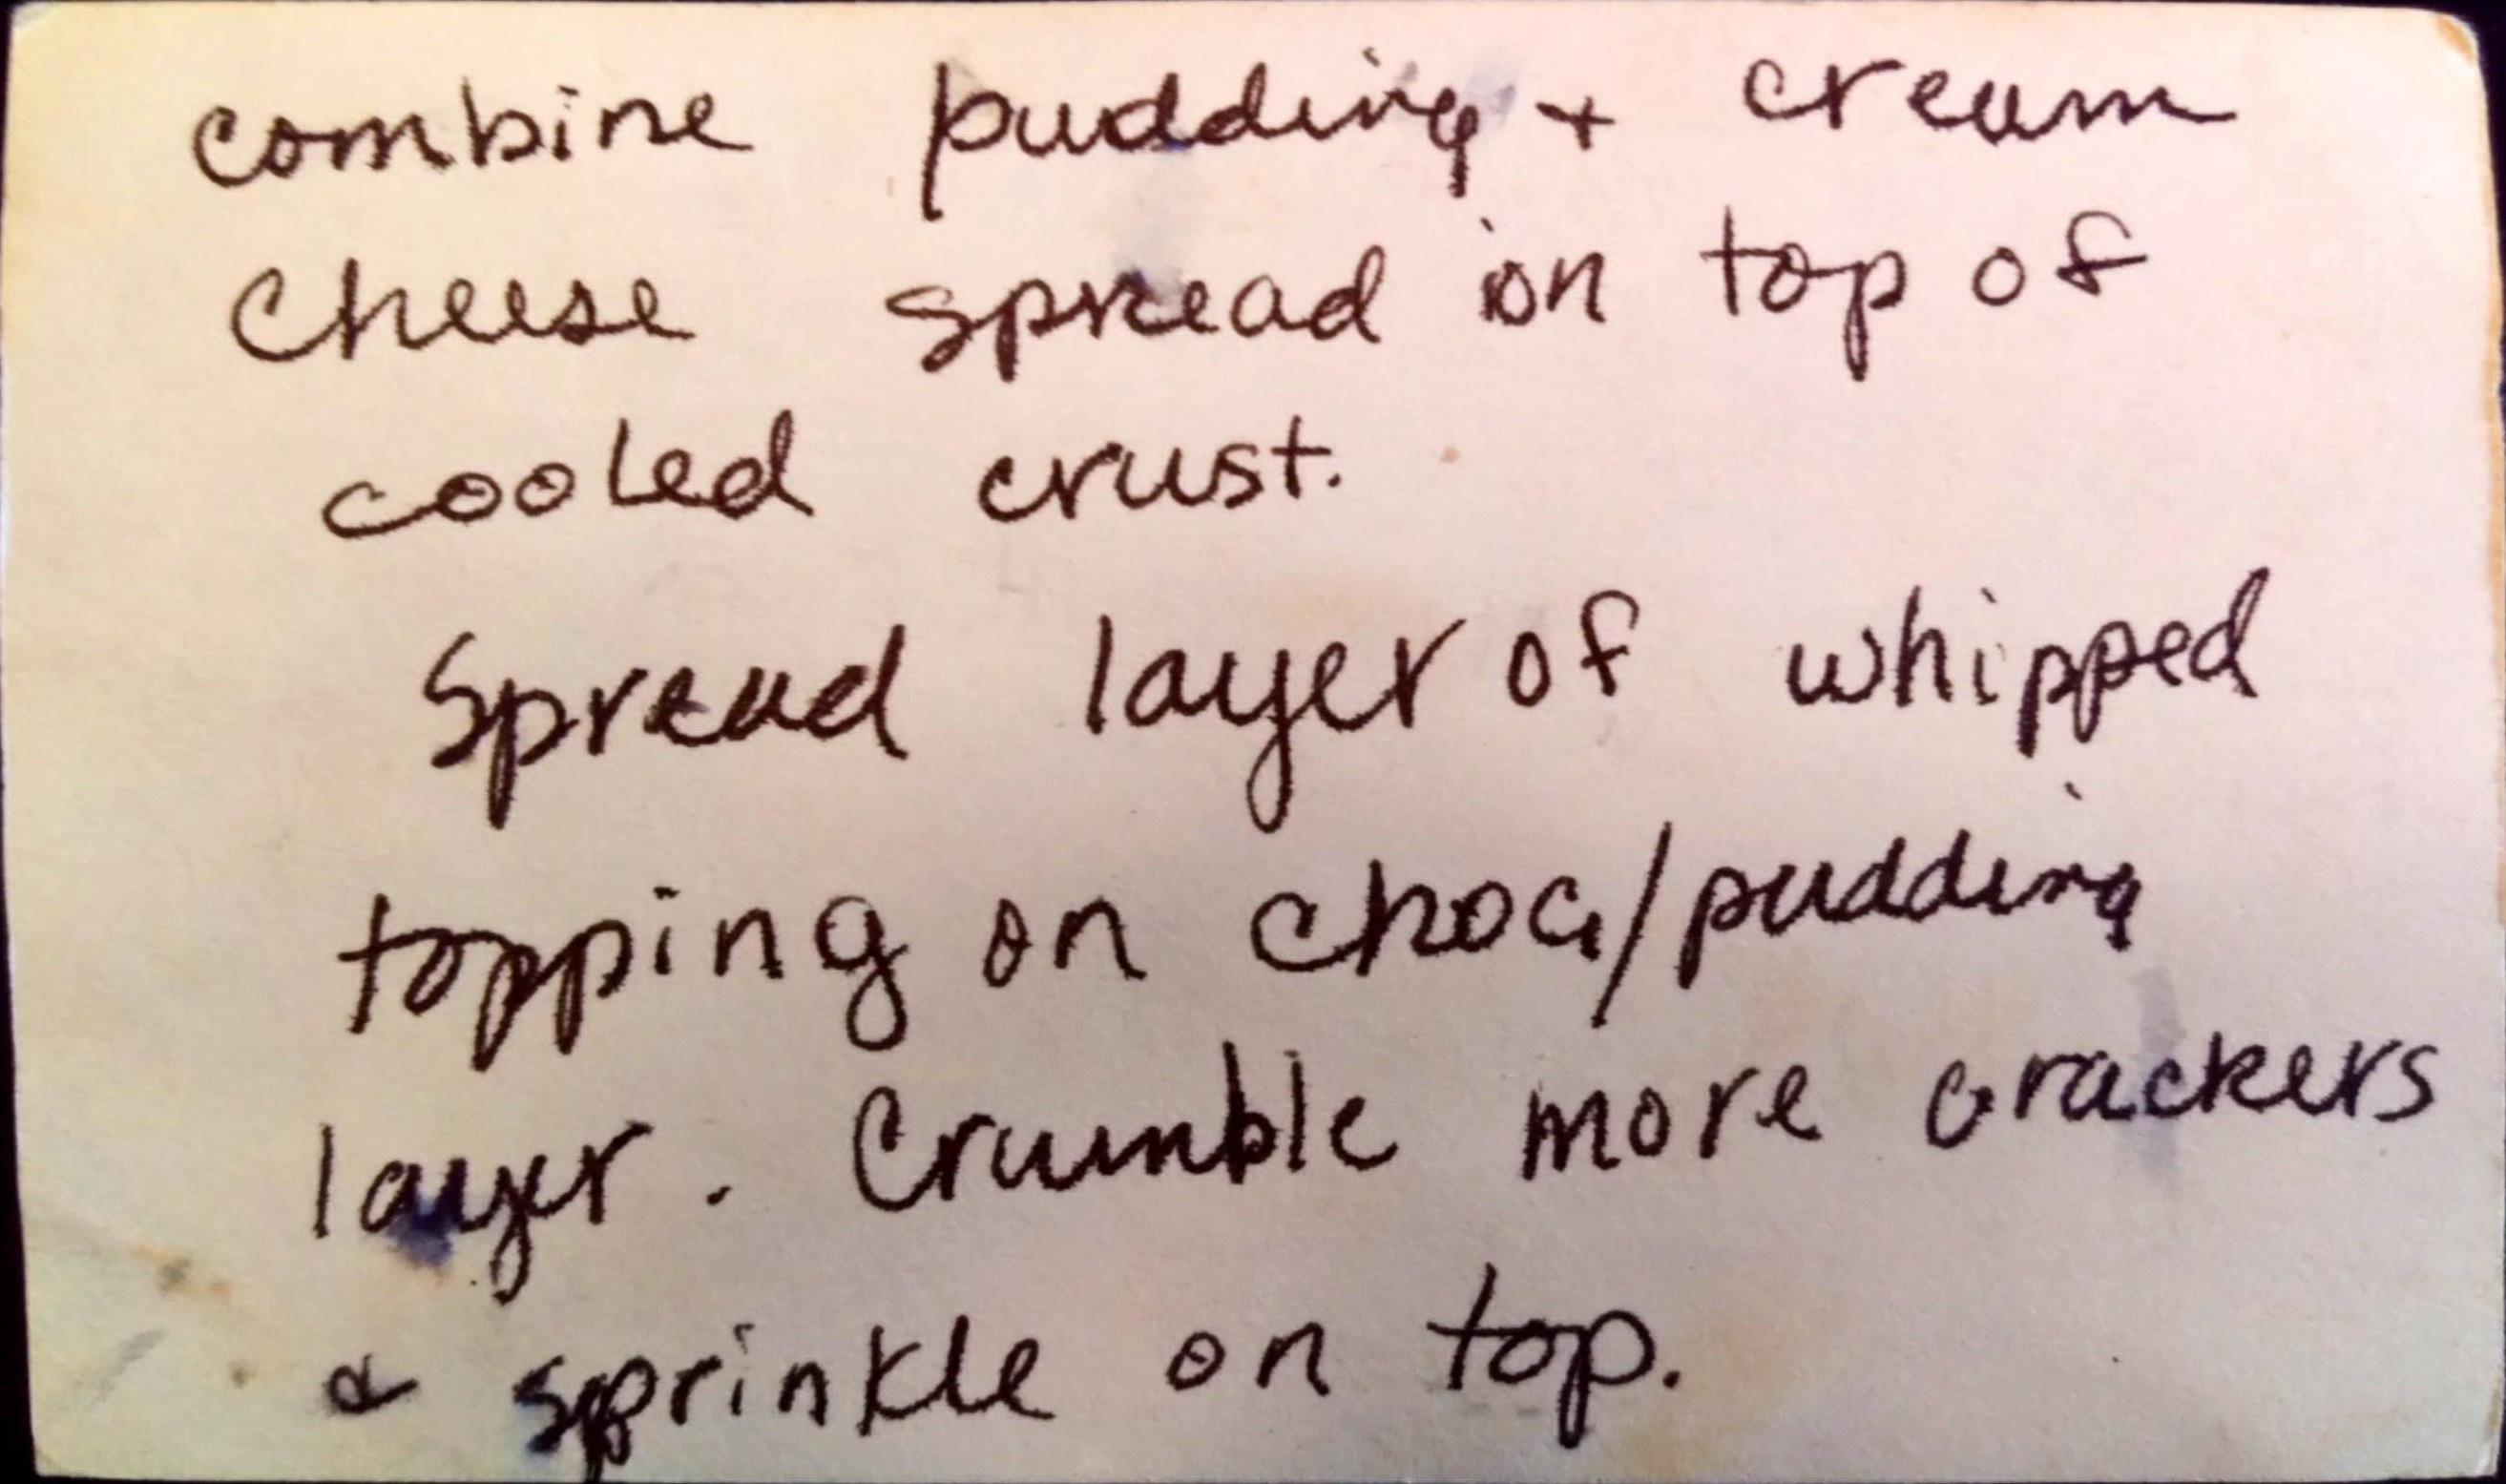 combine pudding + cream
cheese spread on top of
cooled crust.
Spread layer of whipped
topping on choc/pudding
layer. Crumble more crackers
& sprinkle on top.